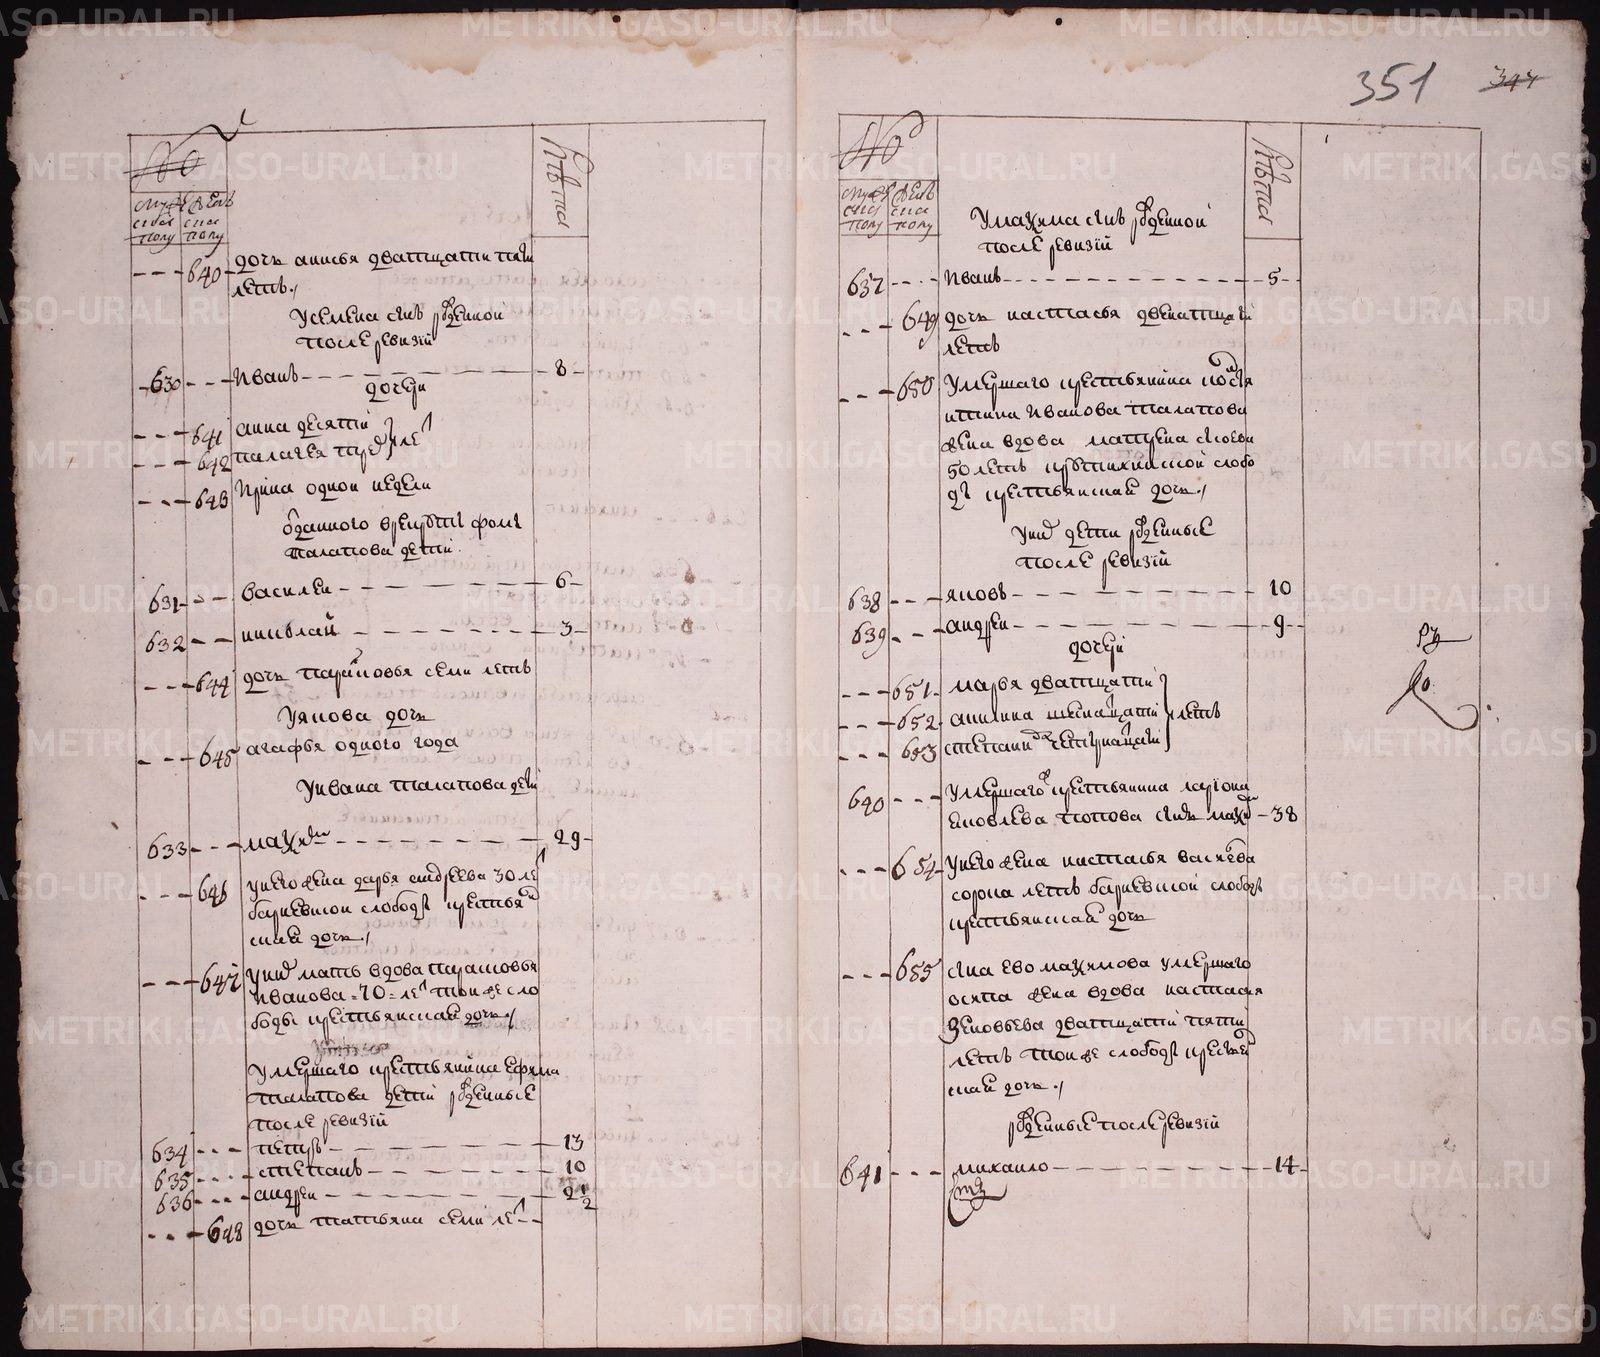 351 344
№
Мужеска полу
Женска полу
Лѣта
640 дочь анисья дватцати пяти
летъ
У семена сынъ рожденной
после ревизiи
630 Иванъ 8
дочери
641 анна десяти
642 палагея трех лет
643 Ирина одной недели
данного в рекруты фомы
талапова дети
631 василеи 6
632 николай 3
644 дочь парасковья семи летъ
У якова дочь
645 агафья одного года
У ивана талапова дети
633 29
646 у него жена дарья андреева 30 лет
слободы крестьян
ская дочь
647 у них мать вдова парасковья
иванова 70 лет той же сло
боды крестьянская дочь
Умершаго крестьянина ефима
талапова дети рожденные
после ревизiи
634 петръ 13
635 степанъ 10
636 андреи 2 1/2
648 дочь татьяна семи лет
№
Мужеска полу
Женска полу
Лѣта
У максима сынъ рожденной
после ревизiи
637 Иванъ 5
649 дочь настасья двенатцати
летъ
650 Умершаго крестьянина коста
нтина Иванова талапова
жена вдова матрена
50 летъ слобо
ды крестьянская дочь
У них дети рожденные
после ревизiй
638 яковъ 10
639 андреи 9
дочери
651 марья дватцати
652 акилина летъ
653 степанида четырнатцати
640 Умершаго крестьянина лариона
яковлева попова сынъ 38
654 У него жена настасья
сорока летъ слободы
крестьянская дочь
655 сына ево максимова умершаго
осипа жена вдова настасья
Зеновьева дватцати пяти
летъ той же слободы крестьян
ская дочь
рожденные после ревизiй
641 михаило 14
METRIKI.GASO-URAL.RU